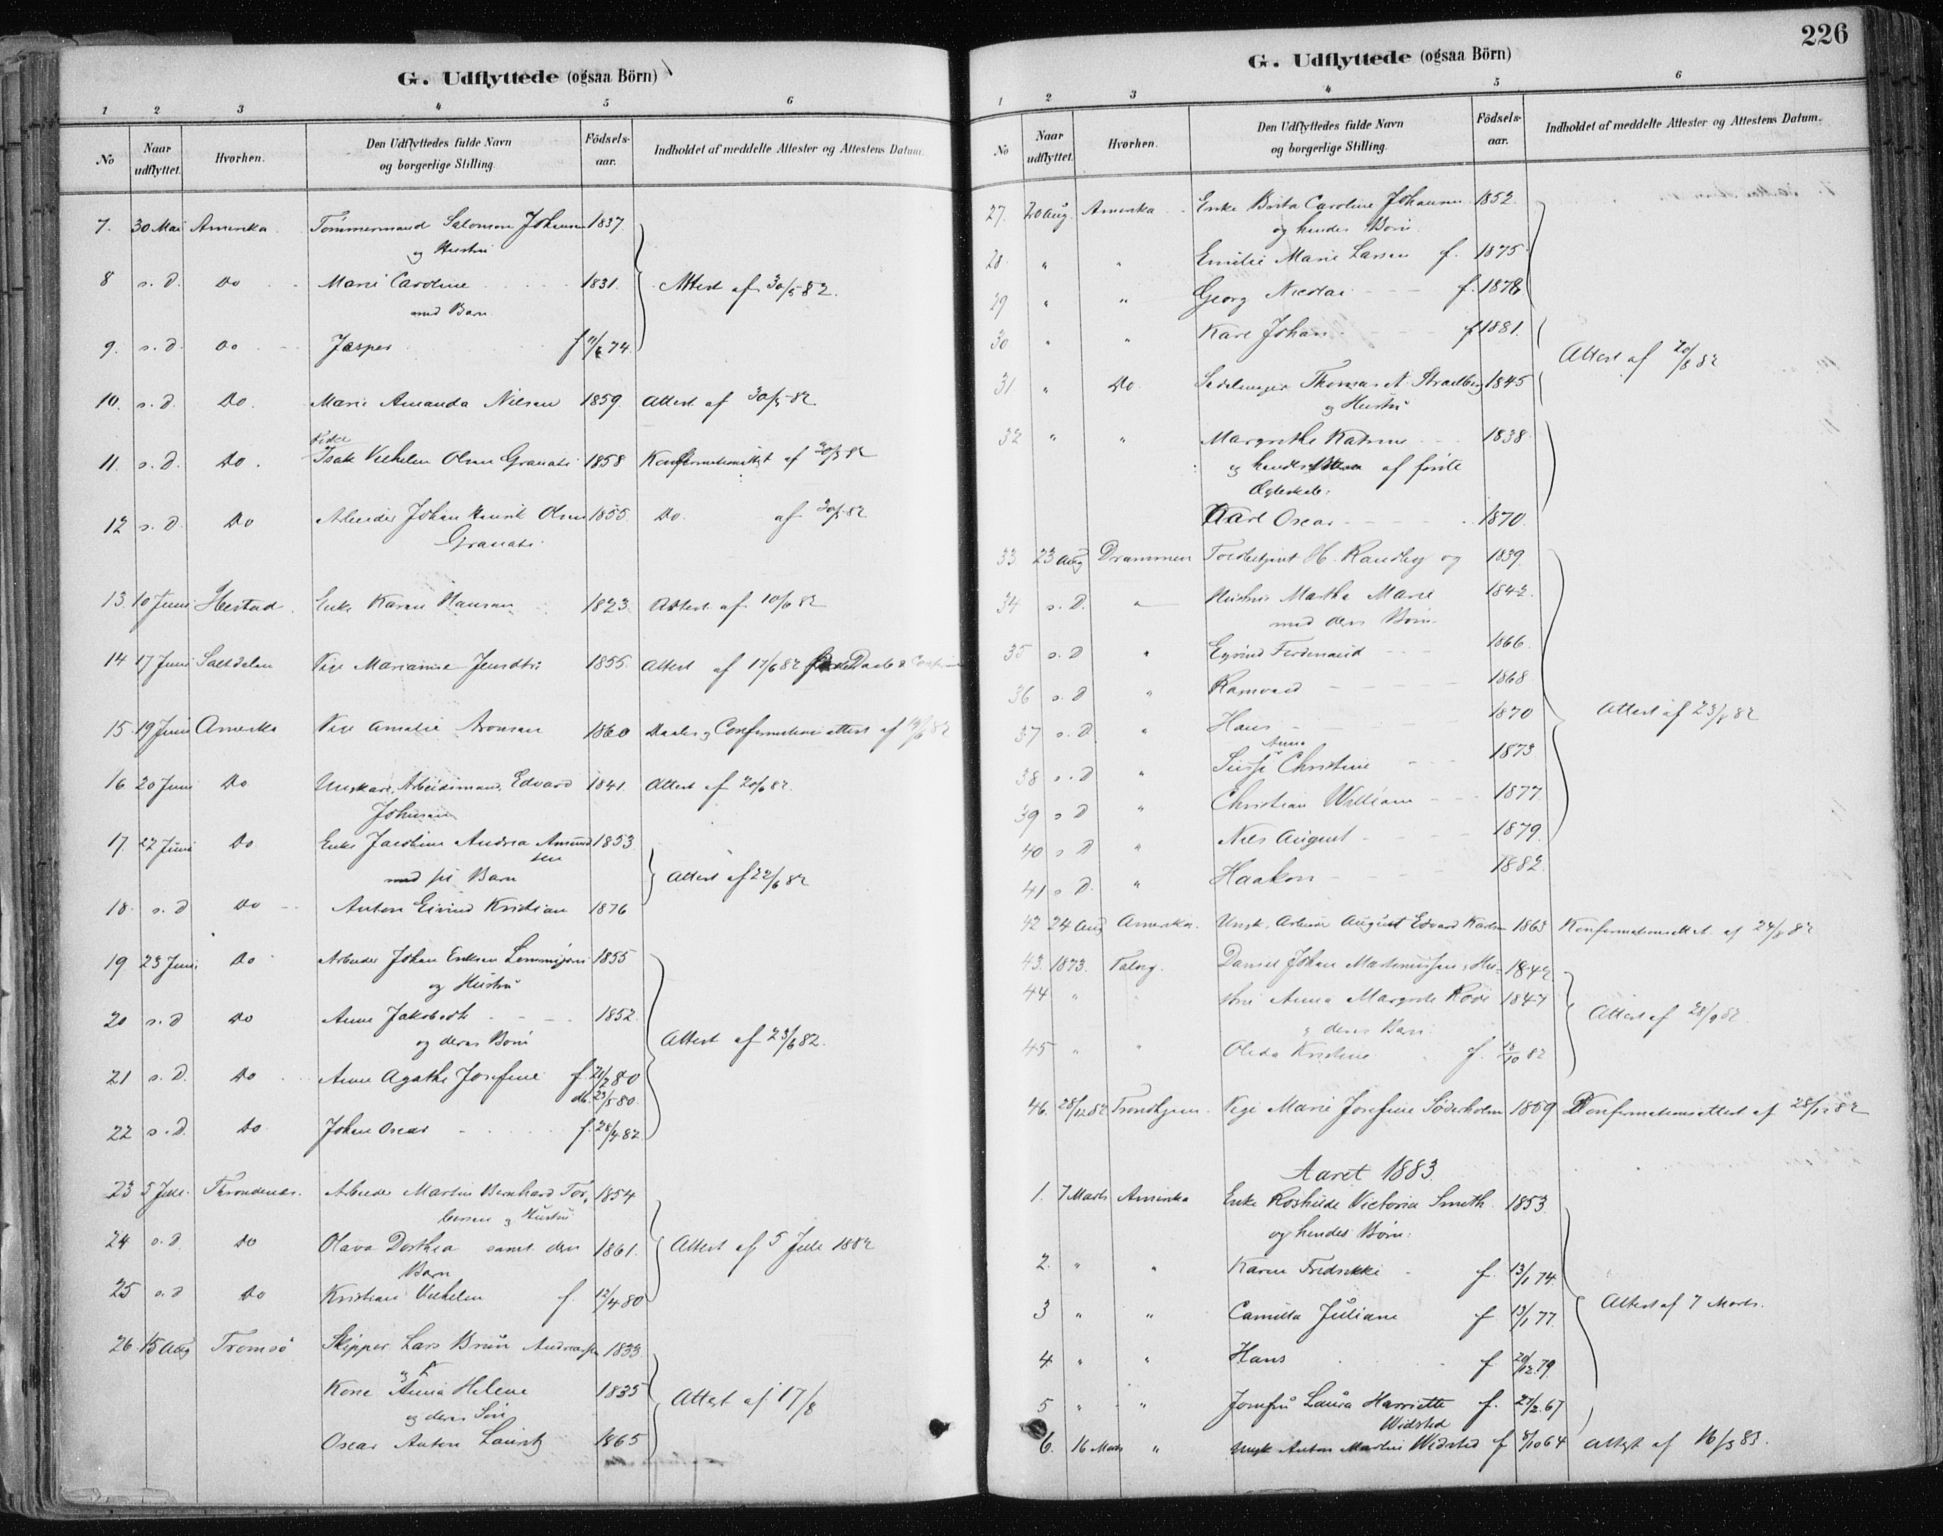 G. Udflyttede (ogsaa Börn)
1 2 3 4 5 6
No Naar udflyttet. Hvorhen. Den Udflyttedes fulde Navn og borgerlige Stilling. Födsels-aar. Indholdet af meddelte Attester og Attestens Datum.
7. 30 Mai Amerika Tömmermand Salomon Johansen 1837
og Hustru
8 s. d. Do Marie Caroline 1831. Attest af 30/5 82.
med Barn
9. s. d. Do Jasper f 74.
10. s. d. Do. Marie Amanda Nilsen 1859. Attest af 30/5 82
11. s. d. Do. Isak Vilhelm Olsen Granati 1858 Konfirmationsattest af 30/5 82
12 s. d. Do Arbeider Johan Henrik Olsen 1855. Do. af 30/5 82
Granati
13. 10 Juni Enke Karen Hansen 1823. Attest af 10/6 82
14 17 Juni Saltdalen Pige Marianne 1855. Attest af 17/6 82
15 19 Juni Amerika Pige Amalie Aronsen 1860 Daabs og Confirmations attest af 19/6 82
16 20 Juni Do Ungkarl, Arbeidsmand, Edvard 1841. Attest af 20/6 82.
Johnsen
17. 22 Juni Do Enke Jacobine Andrea Amund 1853
sen
med sit Barn Attest af 22/6 82
18. s. d Do Anton Eivind Kristian 1876
19 23 Juni Do Arbeider Johan Eriksen 1855
og Hustru
20 s. d Do Anne Jakobeth 1852.
og deres Börn Attest af 23/6 82.
21 s. d. Do Anne Agathe Josefine f. 21/2 80
db. 23/5 80.
22 s. d. Do Johan Oscar f. 28/4 82.
23 5 Juli. Throndenes. Arbeider Martin Bernhard Tor, 1854
bersen og Hustru
24 s. d. Do Olava Dorthea samt deres 1861. Attest af 5 Juli 1882
Barn
25 s. d Do Kristian Vilhelm f. 12/4 80
26 15 Aug Tromsö Skipper Lars Bruun Andreassen 1833
og
Kone Anna Helene 1835 Attest af 17/8
og deres Sön
Oscar Anton Lauritz 1865
226
G. Udflyttede (ogsaa Börn)
1 2 3 4 5 6
No Naar udflyttet. Hvorhen. Den Udflyttedes fulde Navn og borgerlige Stilling. Födsels-aar. Indholdet af meddelte Attester og Attestens Datum.
27. 20 Aug. Amerika Enke Berta Caroline Johansen 1852.
og hendes Börn
28 " " Emilie Marie Larsen f. 1875
29 " " Georg Nicolai f. 1878
30 " " Karl Johan f 1881.
Attest af 20/8 82
31 " Do. Thomas 1845
og Hustru
32 " " Margrethe Katrine 1838.
og hendes af förste
Ægteskab:
Karl Oscar 1870.
33. 23 Aug Drammen Toldbetjent H. Randby og 1839.
34 s. D. " Hustru Martha Marie 1842.
med deres Börn.
35 s. D " Eyvind Ferdinand 1866
36 s. D " Ranvard 1868
37 s. D " Hans 1870 Attest af 23/8 82
Anna
38 s. D " Christine 1873
39 s D " Christian William 1877.
40 s D " Nils August 1879.
41 s D. " Haakon 1882.
42 24 Aug Amerika. Ungk. Arbeider August Edvard 1863 Konfirmationsattest af 24/8 82
43. 1873. Daniel Johan Martinussen, Hu- 1842
44 " " stru Anna Margrete 1847 Attest af 28/9 82.
og deres Barn
45 " " Oleda Kristine f. 82
46. 28/12 82 Trondhjem. Pige Marie Josefine Söderholm 1859 Konfirmationsattest af 28/12 82
Aaret 1883.
1. 7 Marts Amerika Enke Roshilde Victoria Smith. 1853.
og hendes Börn:
2. " " Karen Fredrikke f. 13/1 74.
3 " " Camilla Juliane f 13/1 77. Attest af 7 Marts.
4 " " Hans f 20/12 79
5 " " Jomfru Laura Harriette f. 27/2 67
Widsted
6. 16 Marts " Ungk Anton Martin Widsted f 8/10 64 Attest af 16/3 83.